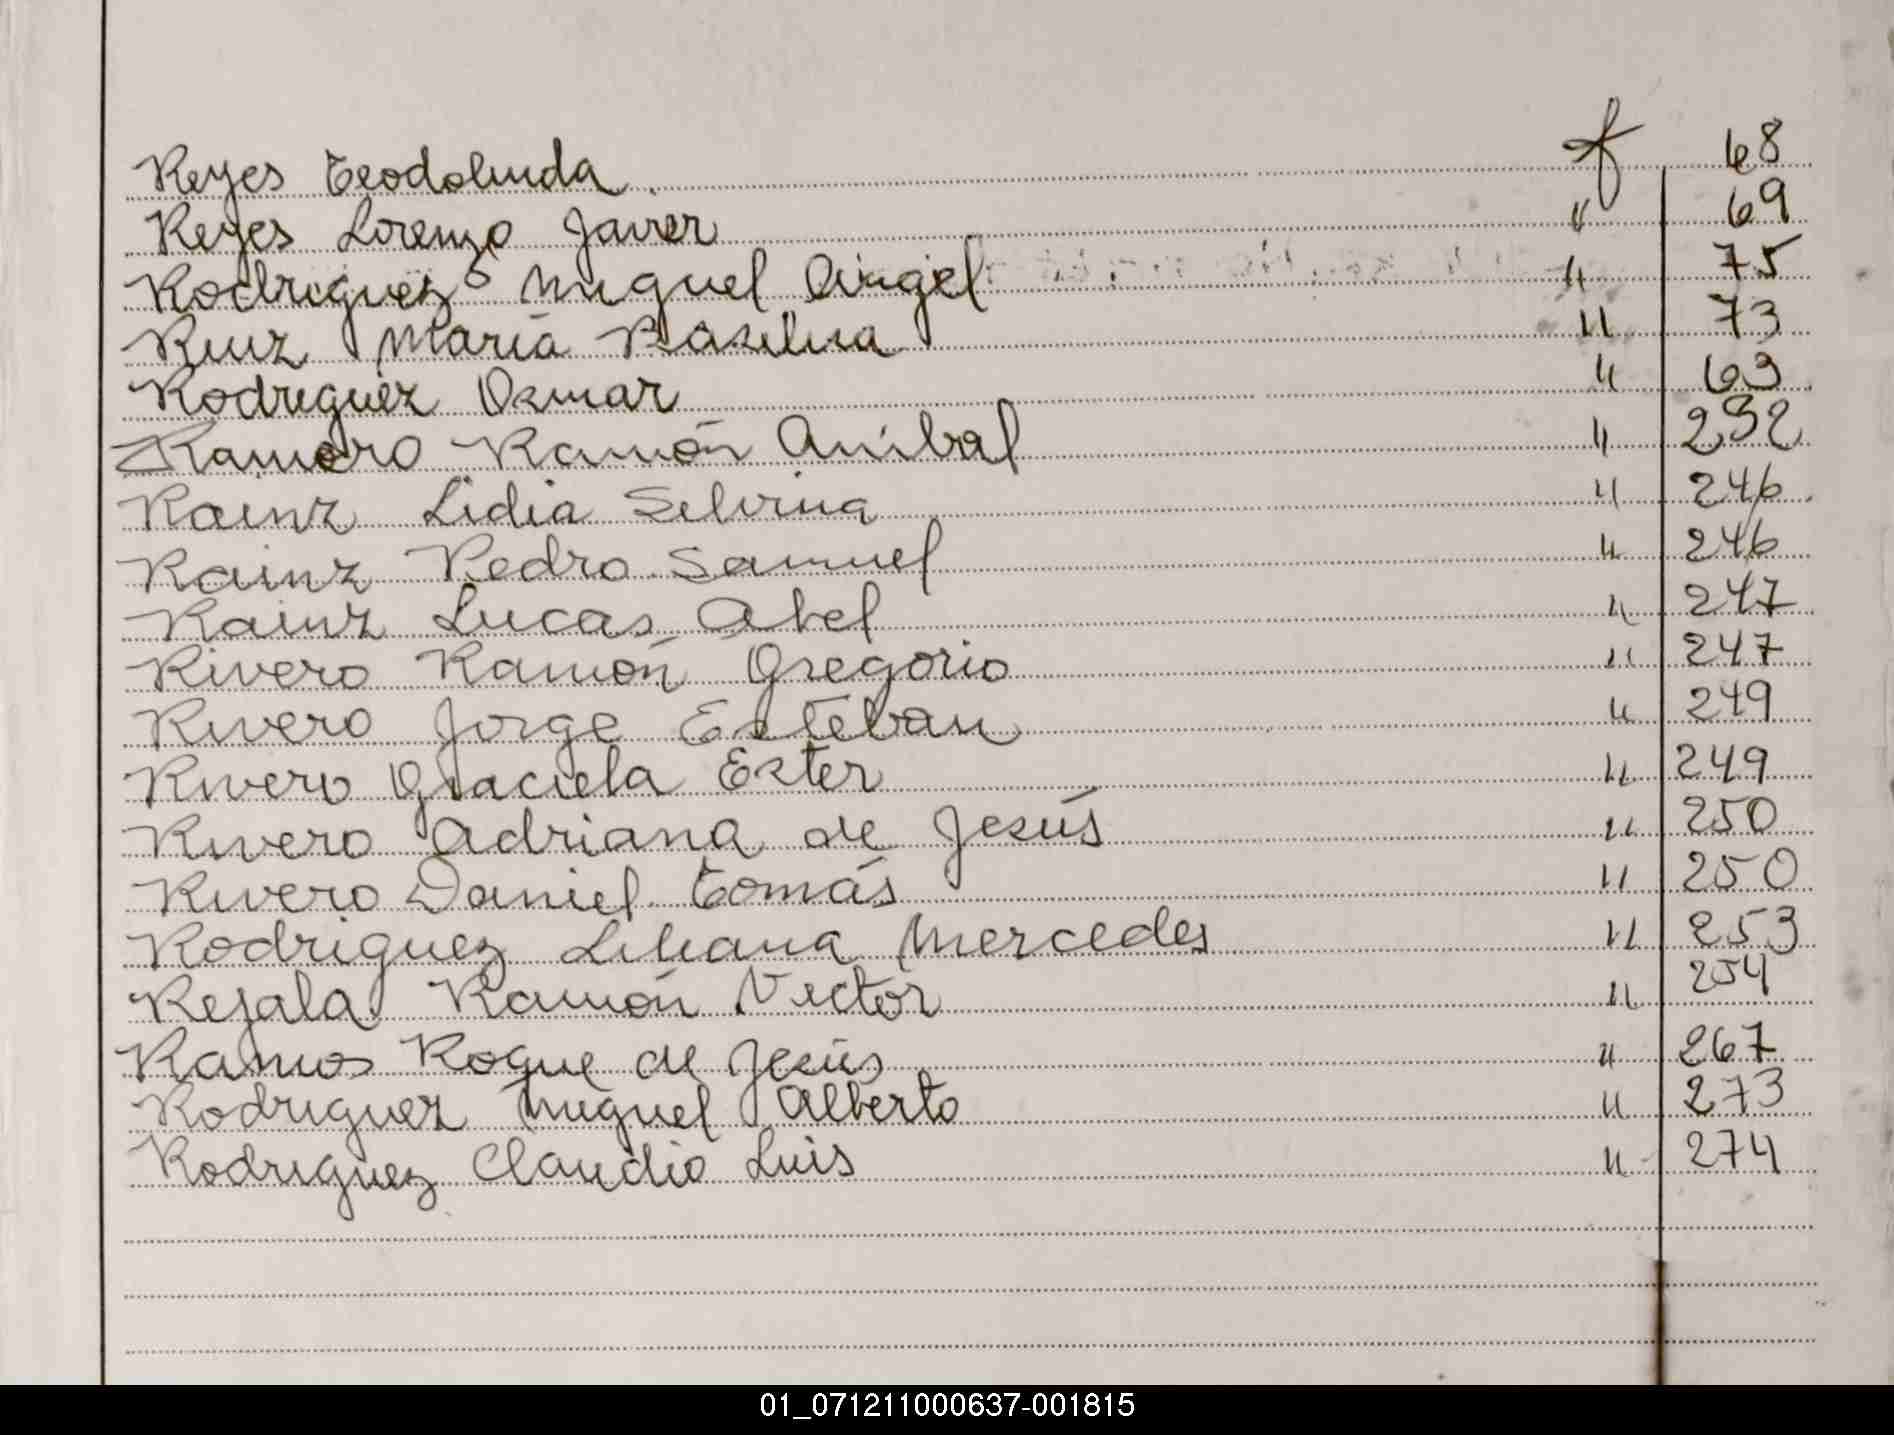 Reyes Teodolinda f 68
Reyes Lorenzo Javier " 69
Rodriguez Miguel Angel " 75
Ruiz María Basilisa " 73
Rodriguez Osmar " 63
Ramero Ramón Anibal " 232
Rainz Lidia Selvina " 246
Rainz Pedro Samuel " 246
Rainz Lucas Abel " 247
Rivero Ramón Gregorio " 247
Rivero Jorge Esteban " 249
Rivero Graciela Ester " 249
Rivero Adriana de Jesús " 250
Rivero Daniel Tomás " 250
Rodriguez Liliana Mercedes " 253
Rejala Ramón Victor " 254
Ramos Roque de Jesús " 267
Rodriguez Miguel Alberto " 273
Rodriguez Claudio Luis " 274
01_071211000637-001815